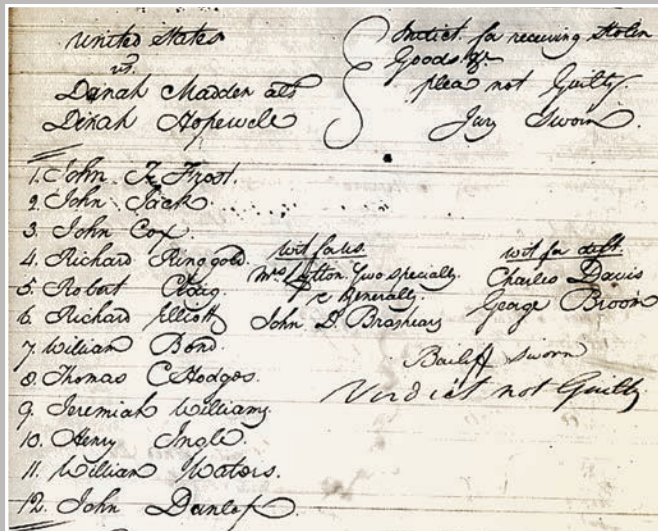 United States
vs.
Dinah Madden als
Dinah Hopewell
Indict. for receiving Stolen
Goods. &c
plea not Guilty.
Jury Sworn.
1. John T. Frost.
2. John Jack.
3. John Cox.
4. Richard Ringgold.
5. Robert Craig.
6. Richard Elliott
7. William Bond.
8. Thomas C Hodges.
9. Jeremiah Williams.
10. Henry Ingle.
11. William Waters.
12. John Dunlop.
wit for us.
Mrs. specially.
& Generally.
John D. Brashears
wit for deft.
Charles Davis
George Broom
Bailiff sworn
Verdict not Guilty